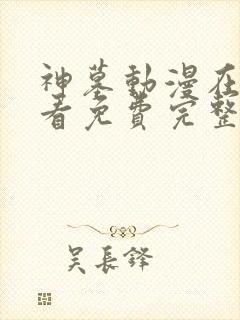 神墓動漫在
看免費完整
吴長鋒